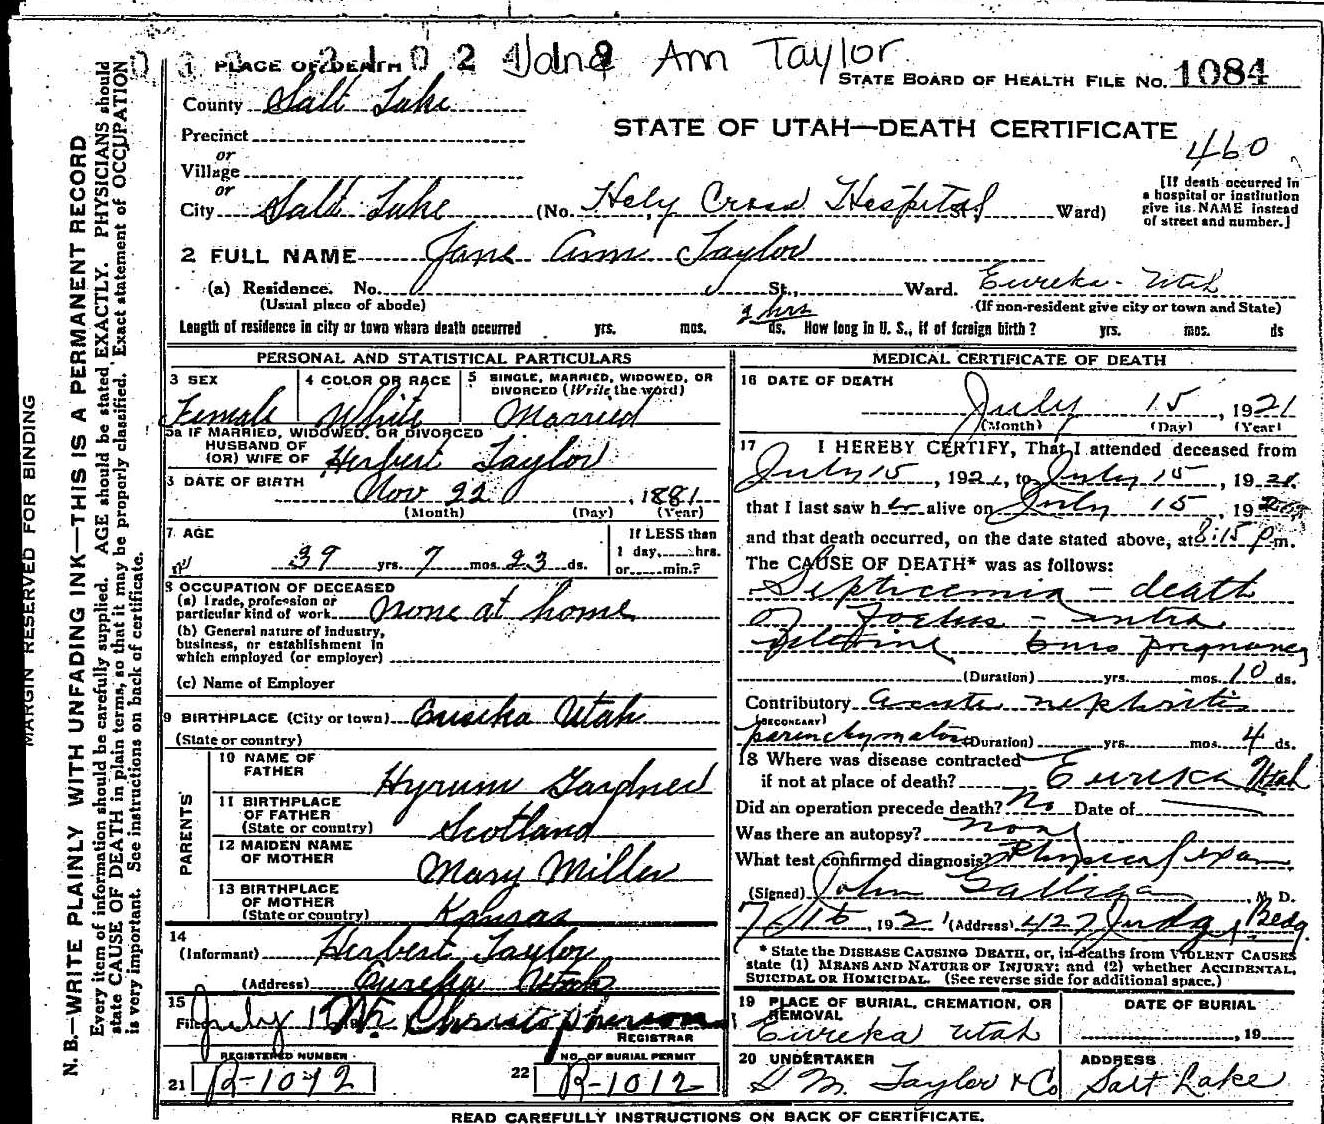 Jane Ann Taylor
1 PLACE OF DEATH
STATE BOARD OF HEALTH FILE NO. 1084
County Salt Lake
STATE OF UTAH—DEATH CERTIFICATE
460
Precinct
or
Village
or
City Salt Lake (No. Holy Cross Hospital St., Ward)
[If death occurred in
a hospital or institution
give its NAME instead
of street and number.]
2 FULL NAME Jane Ann Taylor
(a) Residence. No. St., Ward. Eureka - Utah
(Usual place of abode) (If non-resident give city or town and State)
Length of residence in city or town where death occurred yrs. mos. 2 hrs ds. How long in U. S., if of foreign birth? yrs. mos. ds
PERSONAL AND STATISTICAL PARTICULARS
3 SEX
Female
4 COLOR OR RACE
White
5 SINGLE, MARRIED, WIDOWED, OR
DIVORCED (Write the word)
Married
5a IF MARRIED, WIDOWED, OR DIVORCED
HUSBAND OF
(OR) WIFE OF Herbert Taylor
DATE OF BIRTH
Nov 22, 1881
(Month) (Day) (Year)
7 AGE
39 yrs. 7 mos. 23 ds.
If LESS than
1 day, hrs.
or min.?
8 OCCUPATION OF DECEASED
(a) Trade, profession or
particular kind of work none at home
(b) General nature of industry,
business, or establishment in
which employed (or employer)
(c) Name of Employer
9 BIRTHPLACE (City or town) Eureka Utah
(State or country)
PARENTS
10 NAME OF
FATHER Hyrum Gardner
11 BIRTHPLACE
OF FATHER
(State or country) Scotland
12 MAIDEN NAME
OF MOTHER Mary Miller
13 BIRTHPLACE
OF MOTHER
(State or country) Kansas
14
(Informant) Herbert Taylor
(Address) Eureka Utah
15
Filed July Christopherson
REGISTRAR
REGISTERED NUMBER
21 R-1012
NO. OF BURIAL PERMIT
22 R-1012
MEDICAL CERTIFICATE OF DEATH
16 DATE OF DEATH
July 15, 1921
(Month) (Day) (Year)
17 I HEREBY CERTIFY, That I attended deceased from
July 15, 1921, to July 15, 1921
that I last saw her alive on July 15, 19
and that death occurred, on the date stated above, at 8:15 P.m.
The CAUSE OF DEATH* was as follows:
Septicemia - death
of Foetus - intra
pregnancy
(Duration) yrs. mos. 10 ds.
Contributory acute nephritis
(SECONDARY)
parenchymatous (Duration) yrs. mos. 4 ds.
18 Where was disease contracted
if not at place of death? Eureka Utah
Did an operation precede death? No Date of
Was there an autopsy? none
What test confirmed diagnosis? Physical exam
(Signed) John Galligan, M. D.
7/15, 1921 (Address) 427 Judge Bldg.
* State the DISEASE CAUSING DEATH, or, in deaths from VIOLENT CAUSES
state (1) MEANS AND NATURE OF INJURY; and (2) whether ACCIDENTAL,
SUICIDAL OR HOMICIDAL. (See reverse side for additional space.)
19 PLACE OF BURIAL, CREMATION, OR
REMOVAL
Eureka Utah
DATE OF BURIAL
, 19
20 UNDERTAKER
S. M. Taylor & Co
ADDRESS
Salt Lake
READ CAREFULLY INSTRUCTIONS ON BACK OF CERTIFICATE.
MARGIN RESERVED FOR BINDING
N. B.—WRITE PLAINLY WITH UNFADING INK—THIS IS A PERMANENT RECORD
Every item of information should be carefully supplied. AGE should be stated EXACTLY. PHYSICIANS should
state CAUSE OF DEATH in plain terms, so that it may be properly classified. Exact statement of OCCUPATION
is very important. See instructions on back of certificate.